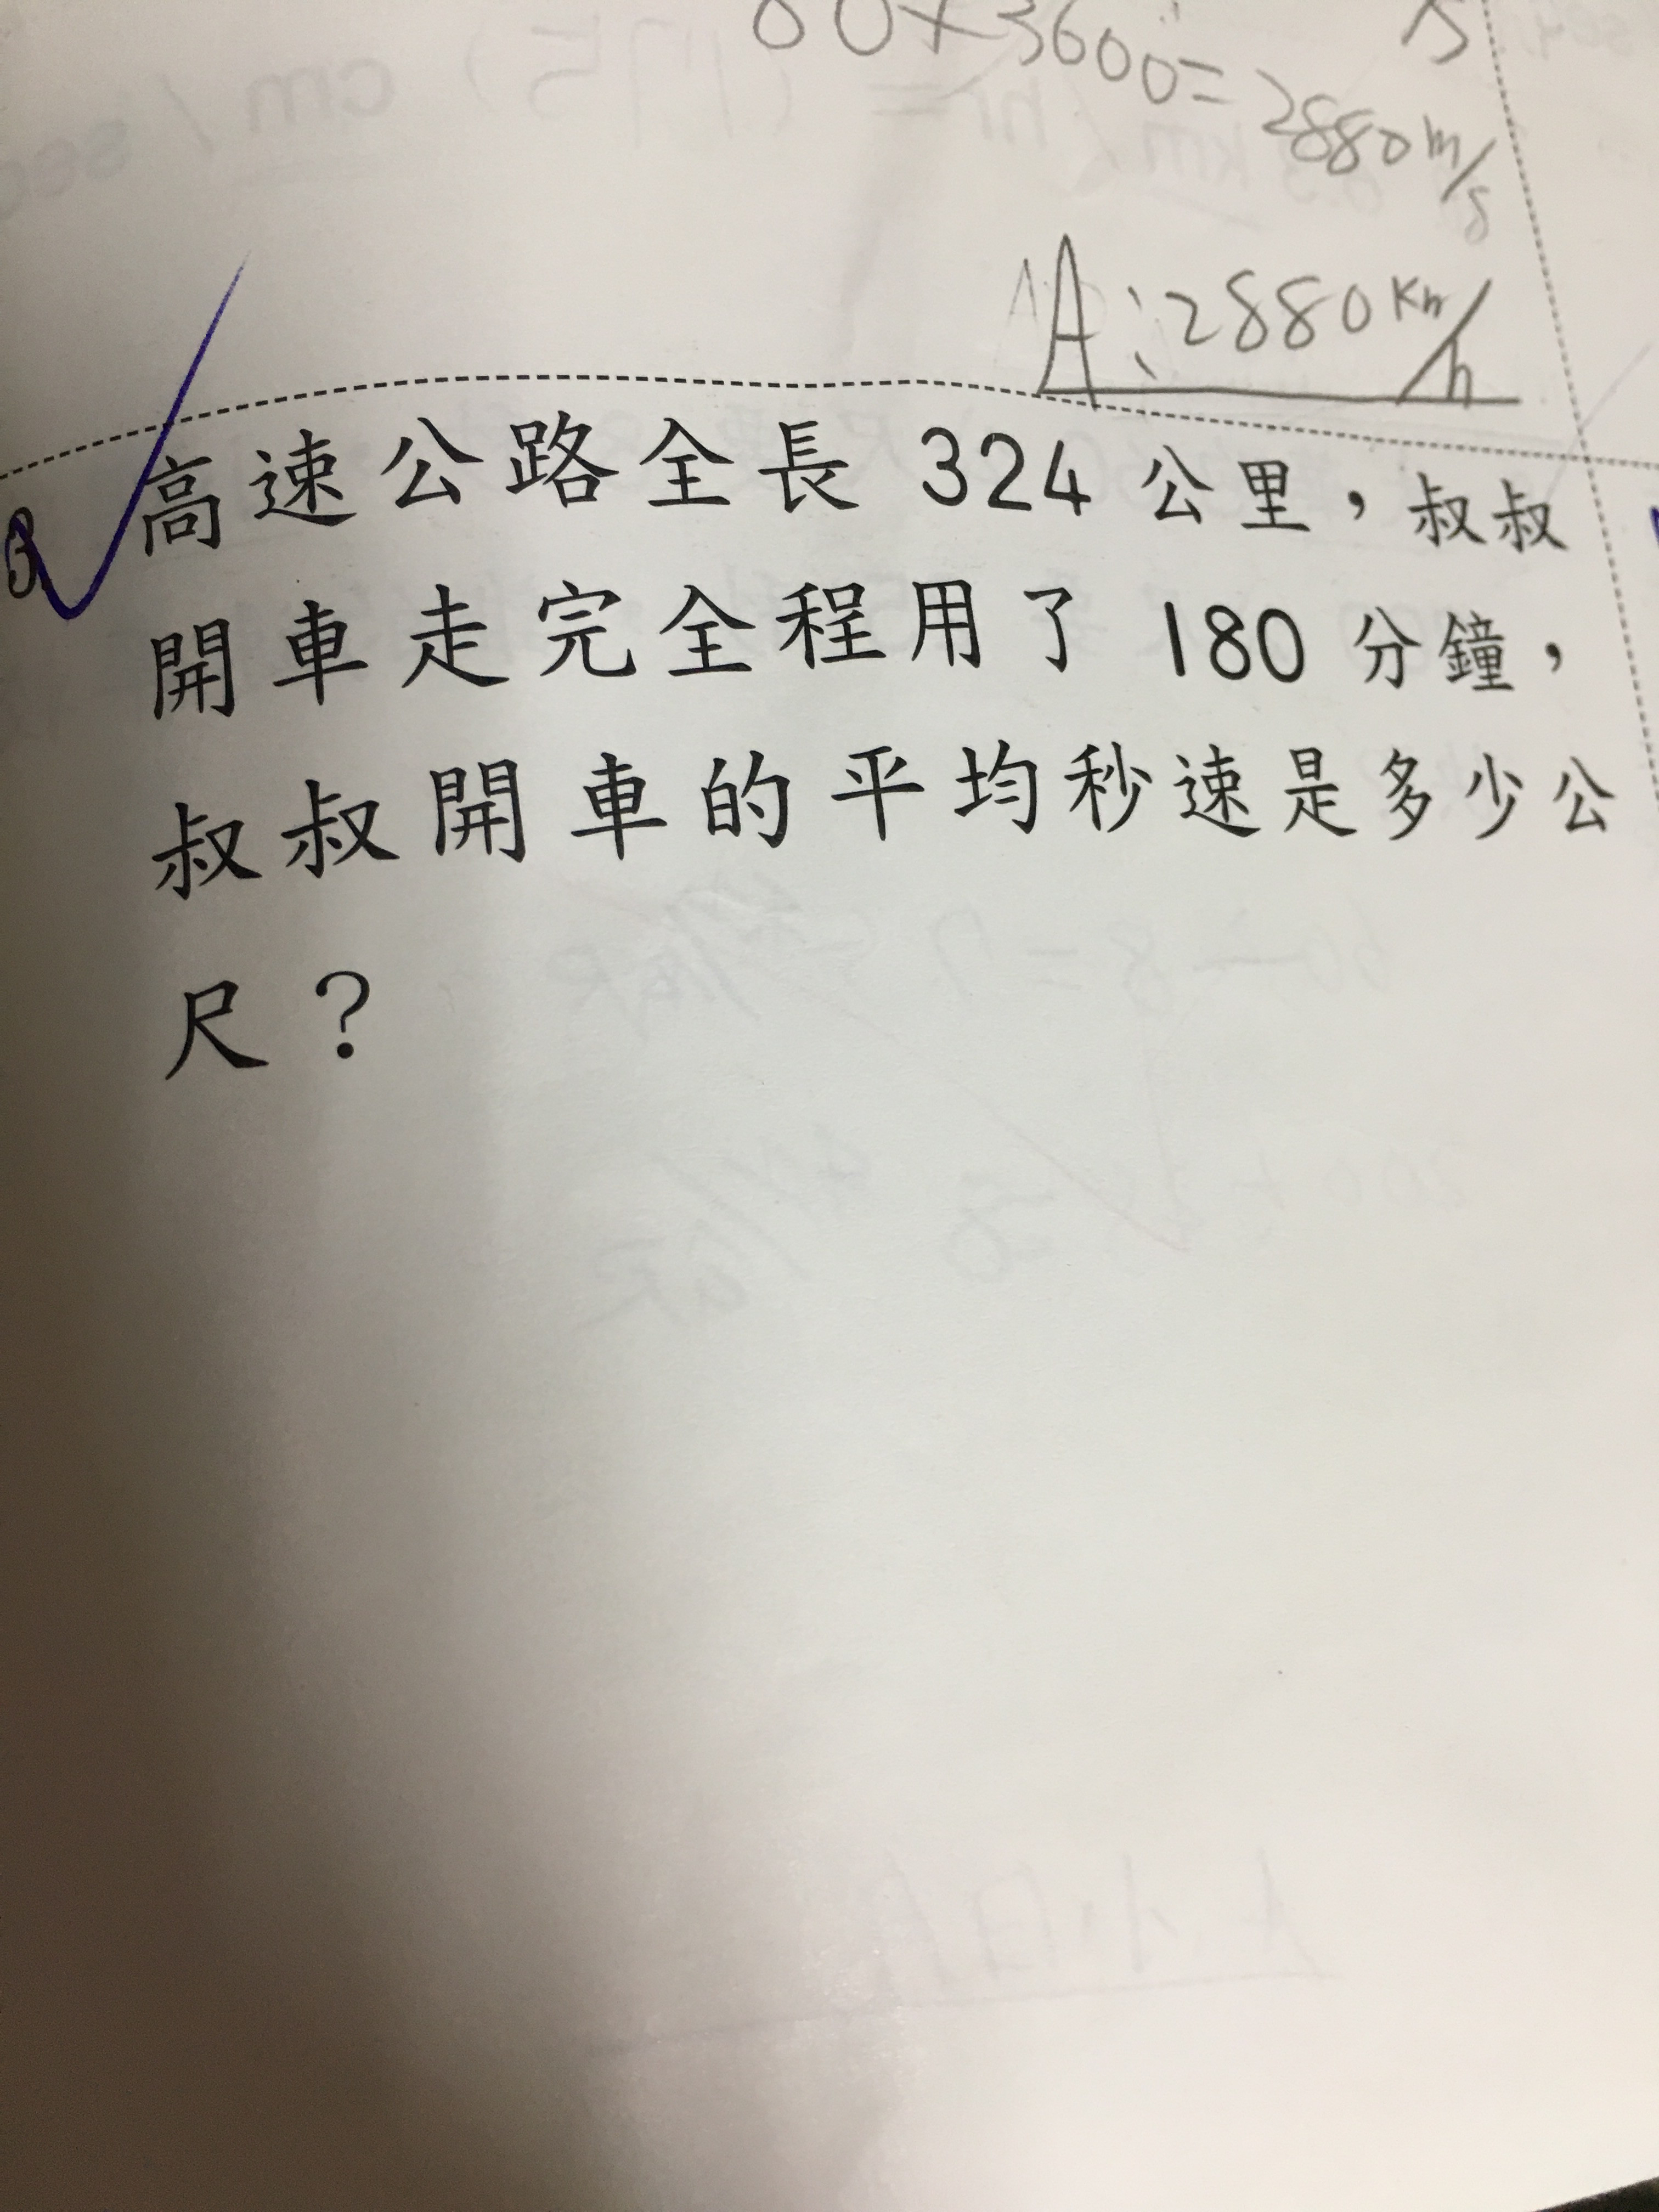 80×3600=2880m/s
A:2880km/h
高速公路全長 324 公里，叔叔
開車走完全程用了 180 分鐘，
叔叔開車的平均秒速是多少公
尺？